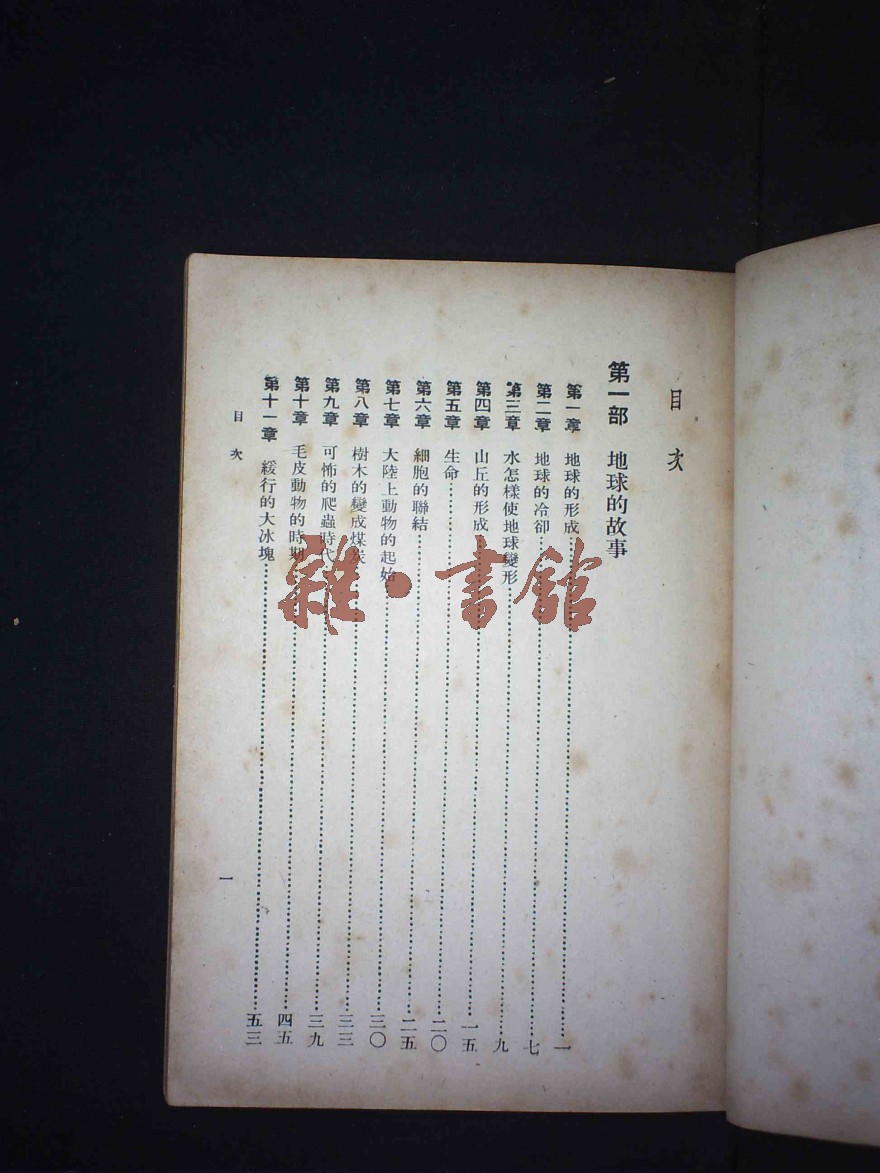 目次
第一部 地球的故事
第一章 地球的形成…………一
第二章 地球的冷卻…………七
第三章 水怎樣使地球變形…………九
第四章 山丘的形成…………一五
第五章 生命…………二〇
第六章 細胞的聯結…………二五
第七章 大陸上動物的起始…………三〇
第八章 樹木的變成煤炭…………三三
第九章 可怖的爬蟲時代…………三九
第十章 毛皮動物的時期…………四五
第十一章 緩行的大冰塊…………五三
目次
一
雜·書館